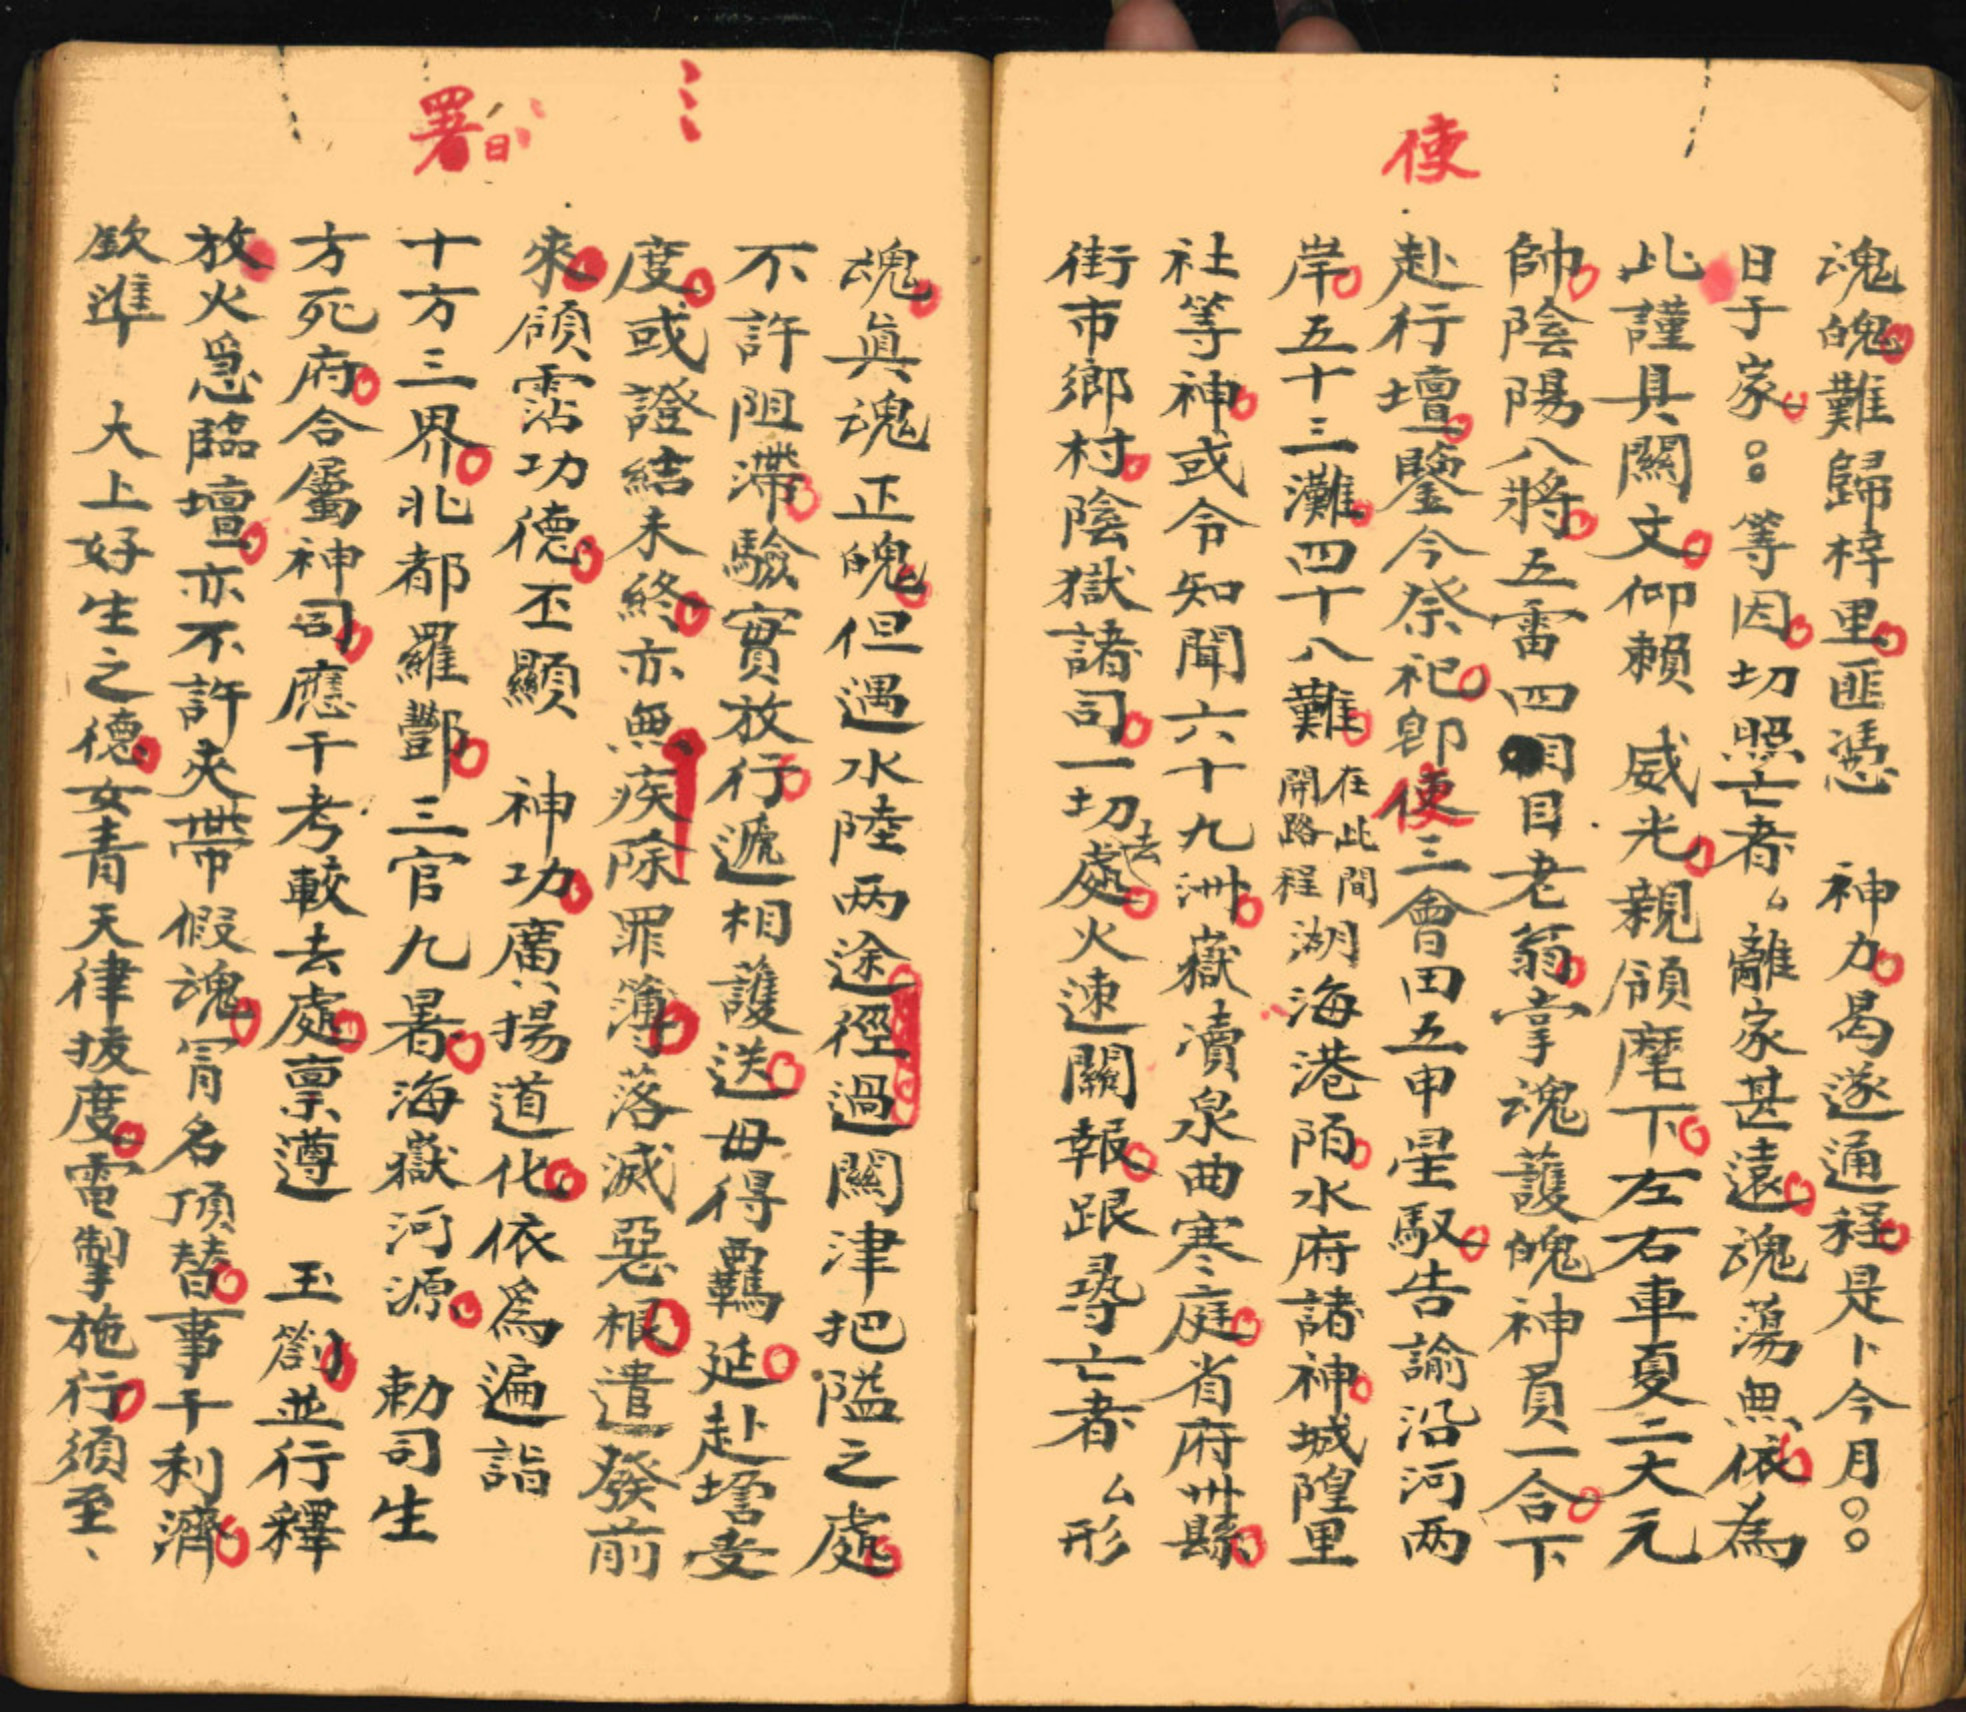 使
魂魄難歸梓里匪憑　神力曷遂通程是卜今月○○
日于家○○等因切照亡者厶離家甚遠魂蕩無依為
此謹具關文仰賴　威光親領麾下左右車夏二大元
帥陰陽八將五雷四目老翁掌魂護魄神員一合下
赴行壇鑒今祭祀卽使三會田五甲星馭告諭沿河两
岸五十三灘四十八難在此間開路程湖海港陌水府諸神城隍里
社等神或令知聞六十九洲嶽瀆泉曲寒庭省府州縣
街市鄉村陰獄諸司一切去處火速關報跟尋亡者厶形
署
魂眞魂正魄但遇水陸两途徑過關津把隘之處
不許阻滯驗實放行遞相護送毋得羈延赴壇受
度或證結未終亦無疾除罪簿落滅惡根遣發前
來領霑功德丕顯　神功廣揚道化依爲遍詣
十方三界北都羅酆三官九暑海嶽河源　勅司生
方死府合屬神司應干考較去處禀遵　玉劄並行釋
放火急臨壇亦不許夾帶假魂冐名頂替事干利濟
欽準　大上好生之德女青天律拔度電掣施行須至、